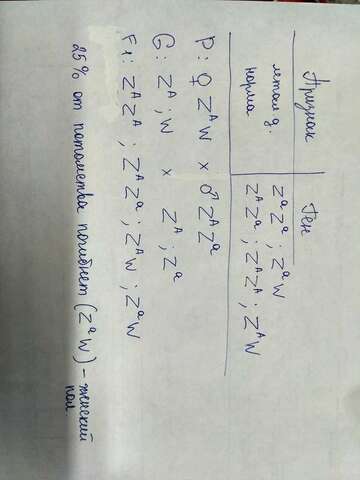 Признак Ген
летал д. ZᵃZᵃ ; ZᵃW
норма ZᴬZᵃ ; ZᴬZᴬ ; ZᴬW
P: ♀ ZᴬW x ♂ ZᴬZᵃ
G: Zᴬ ; W x Zᴬ ; Zᵃ
F₁: ZᴬZᴬ ; ZᴬZᵃ ; ZᴬW ; ZᵃW
25% от потомства погибнет (ZᵃW) - женский
пол